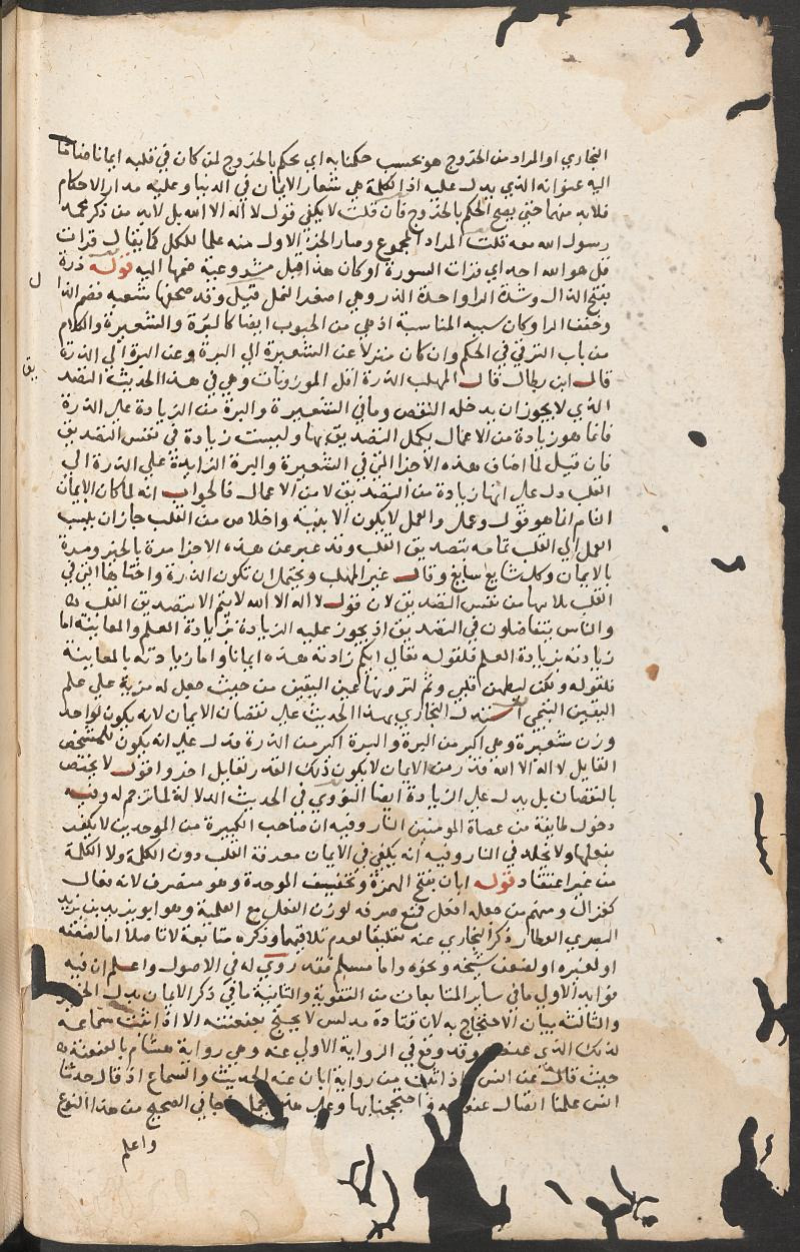 البخاري او المراد من الخروج هو بحسب حكمنا به اي يحكم بالخروج لمن كان في قلبه ايمانا ضاما
اليه عنوانه الذي يدل عليه اذ الكلمة هي شعار الايمان في الدنيا وعليه مدار الاحكام
فلابد منهما حتى يصح الحكم بالخروج فان قلت لا يكفي قول لا اله الا الله بل لابد من ذكر محمد
رسول الله معه قلت المراد المجموع وصار الجزء الاول منه علما للكل كما يقال قرات
قل هو الله احد اي قرات السورة او كان هذا قبل مشروعية ضمها اليه قوله ذرة
بفتح الذال وشدة الرا واحدة الذر وهي اصغر النمل قيل وقد صحفها شعبه فضم الذال
وخفف الرا وكان سببه المناسبة اذ هي من الحبوب ايضا كالبرة والشعيرة والكلام
من باب الترقي في الحكم وان كان منزلا عن الشعيرة الي البرة وعن البرة الي الذرة
قال ابن بطال قال المهلب الذرة اقل الموزونات وهي في هذا الحديث التصديق
الذي لا يجوز ان يدخله النقص وما في الشعيرة والبرة من الزيادة علي الذرة
فانما هو زيادة من الاعمال يكمل التصديق بها وليست زيادة في نفس التصديق
فان قيل لما اضاف هذه الاجزا التي في الشعيرة والبرة الزايدة علي الذرة الي
القلب دل علي انها زيادة من التصديق لا من الاعمال فالجواب انه لما كان الايمان
التام انما هو قول وعمل والعمل لا يكون الا بنية واخلاص من القلب جاز ان ينسب
العمل الي القلب تمامه بتصديق القلب وقد عبر عن هذه الاجزا مرة بالخير ومرة
بالايمان وكل شايع سايغ وقال غير المهلب ويحتمل ان تكون الذرة واختاها التي في
القلب كلها من نفس التصديق لان قول لا اله الا الله لا يتم الا بتصديق القلب به
والناس يتفاضلون في التصديق اذ يجوز عليه الزيادة بزيادة العلم والمعاينة اما
زيادته بزيادة العلم فلقوله تعالي ايكم زادته هذه ايمانا واما زيادته بالمعاينة
فلقوله ولكن ليطمئن قلبي وثم لترونها عين اليقين من حيث جعل له مزية علي علم
اليقين التيمي استدل البخاري بهذا الحديث علي نقصان الايمان لانه يكون لواحد
وزن شعيرة وهي اكبر من البرة والبرة اكبر من الذرة فدل علي انه يكون للشخص
القايل لا اله الا الله قدر من الايمان لا يكون ذلك القدر لقايل اخر واقول لا يختص
بالنقصان بل يدل علي الزيادة ايضا النووي في الحديث الدلالة لما ترجم له وفيه
دخول طايفة من عصاة المومنين النار وفيه ان صاحب الكبيرة من الموحدين لا يكفر
بفعلها ولا يخلد في النار وفيه انه يكفي في الايمان معرفة القلب دون الكلمة ولا الكلمة
من غير اعتقاد قوله ابان بفتح الهمزة وتخفيف الموحدة وهو منصرف لانه فعال
كغزال ومنهم من جعله افعل فمنع صرفه لوزن الفعل مع العلمية وهو ابو يزيد بن يزيد
البصري العطار ذكر البخاري عنه تعليقا لعدم تلاقيهما وذكره متابعة لا تاصلا اما لضعفه
او لغيره او لضعف شيخه ونحوه واما مسلم فقد روي له في الاصول واعلم ان فيه
فوايد الاولي ما في ساير المتابعات من التقوية والثانية ما في ذكر الايمان بدل الخير
والثالثة بيان الاحتجاج به لان قتادة مدلس لا يحتج بعنعنته الا اذا ثبت سماعه
لذلك الذي عنعن وقد وقع في الرواية الاولي عنه وهي رواية هشام بالعنعنة
حيث قال عن انس اذ اتي من رواية ابان عنه الحديث والسماع اذ قال حدثنا
انس علمنا اتصال واحتججنا بها وعلي جا في الصحيح من هذا النوع
واعلم